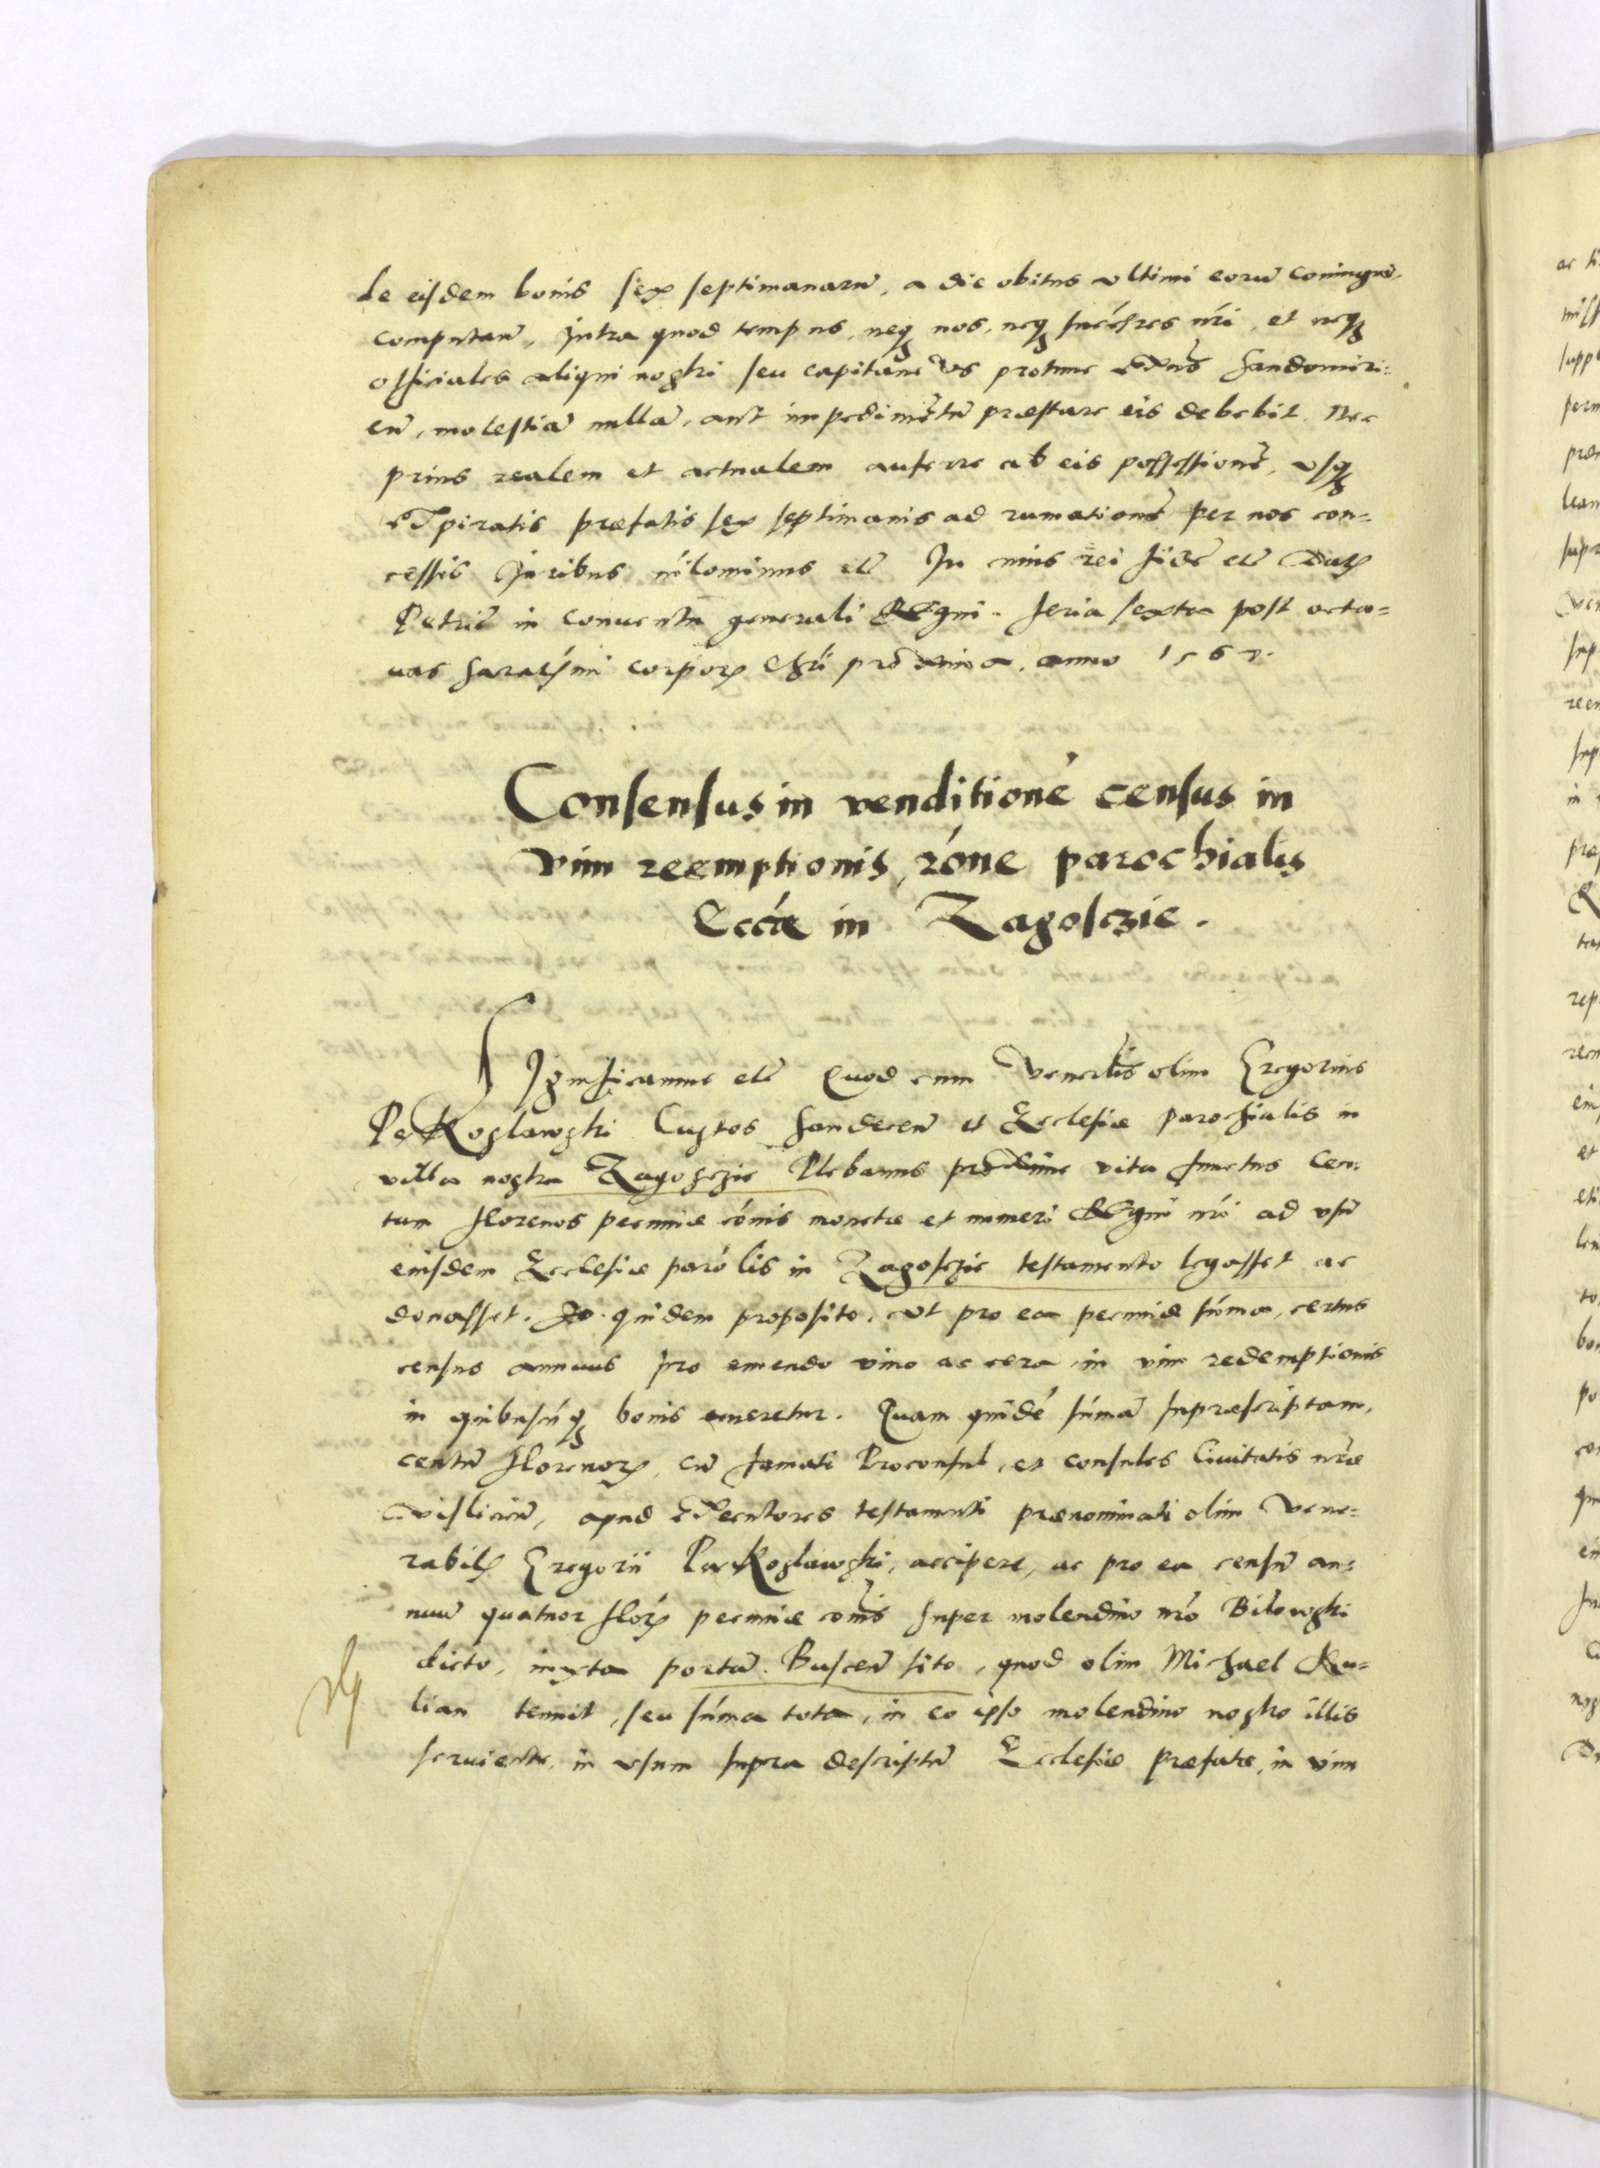 de eisdem bonis sex septimanarũ, a die obitus ultimi eorũ coniugũ,
computan̄, Intra quod tempus, neq nos, neq succ̃res nr̃i, et neq
officiales aliqui nostri seu capitaneus protunc exn̄s Sandomiri-
en̄, molestiã nullã, aut impedimẽtũ præstare eis debebit. Nec
prius realem et actualem auferre ab eis possessionẽ, usq
expiratis præfatis sex septimanis ad rumationẽ per nos con-
cessis Juribus nilominus etc̃ In cuius rei fidẽ etc̃ Datꝝ
Petric̃ in conventu generali Regni. feria sexta post octa-
vas Sacratꝭmi corporꝭ Chr̃i proxima. anno 1567.
Consensus in venditionẽ census in
vim reemptionis, rõne parochialis
Eccæ in Zagosczie.
Significamus etc̃ Quod cum Venerlis olim Gregorius
Paykoslawski Custos Sandecen̄ et Ecclesiæ parochialis in
villa nostra Zagosczie Plebanus proxime vita functus Cen-
tum florenos pecuniæ cõnis monetæ et numeri Regni nr̃i ad usũ
eiusdem Ecclesiæ parõlis in Zagosczie testamento legasset ac
donasset. Eo quidem proposito, ut pro ea pecuniæ sũma, certus
census annuus pro emendo vino ac cera in vim redemptionis
in quibuscũq bonis emeretur. Quam quidẽ sũmã supræscriptam,
centũ florenorꝝ, cũ famati Proconsul, et consules Civitatis nr̃æ
Vislicien̄, apud executores testamenti prænominati olim Vene-
rabilꝭ Gregorii Paykoslawski, accipere, ac pro ea censũ an-
nuũ quatuor florꝝ pecuniæ cõnis super molendino nr̃o Bilowski
dicto, iuxta portã Buscen̄ sito, quod olim Michael Ku-
lian tenuit, seu sũma tota, in eo ipso molendino nostro illis
serviente, in usum supra descriptũ Ecclesiæ præfatæ, in vim